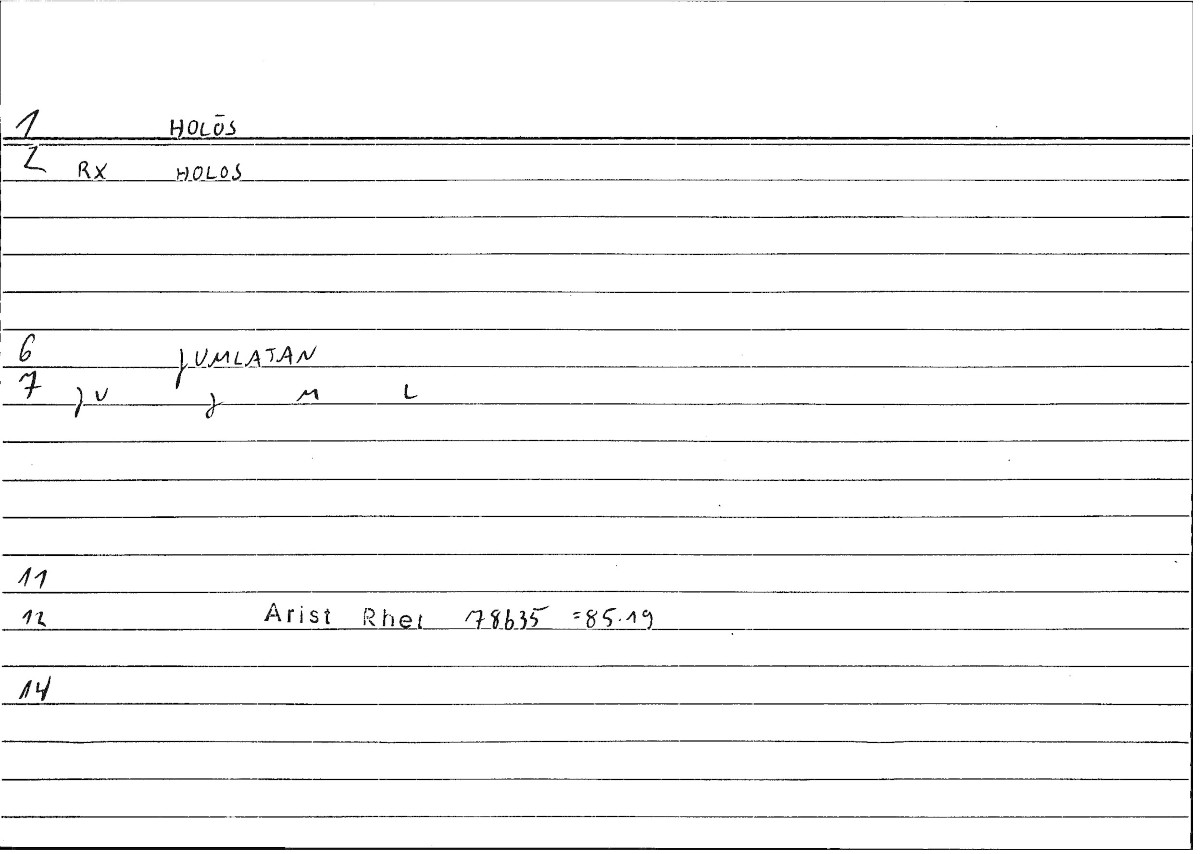 1 HOLŌS
2 RX HOLOS
6 JUMLATAN
7 JU J M L
11
12 Arist Rhet 78b35 =85.19
14